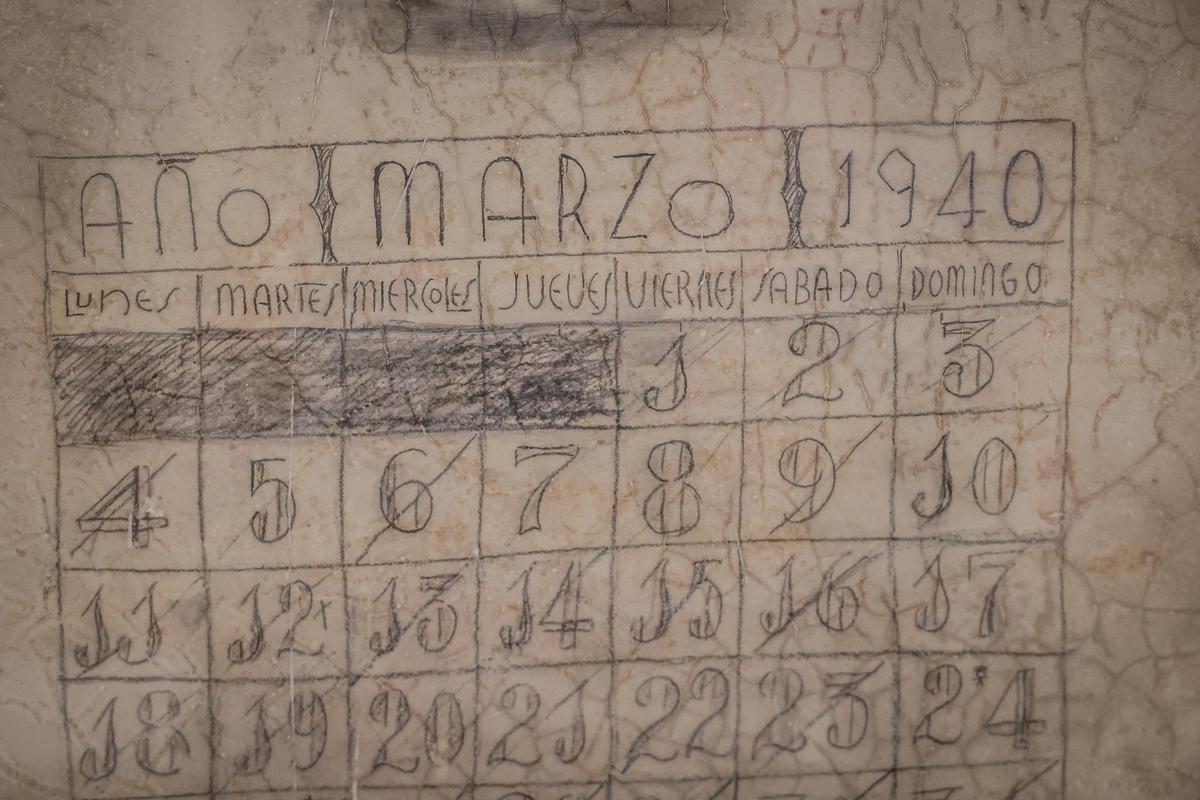 AÑO MARZO 1940
LUNES MARTES MIERCOLES JUEVES VIERNES SABADO DOMINGO
1 2 3
4 5 6 7 8 9 10
11 12 13 14 15 16 17
18 19 20 21 22 23 24